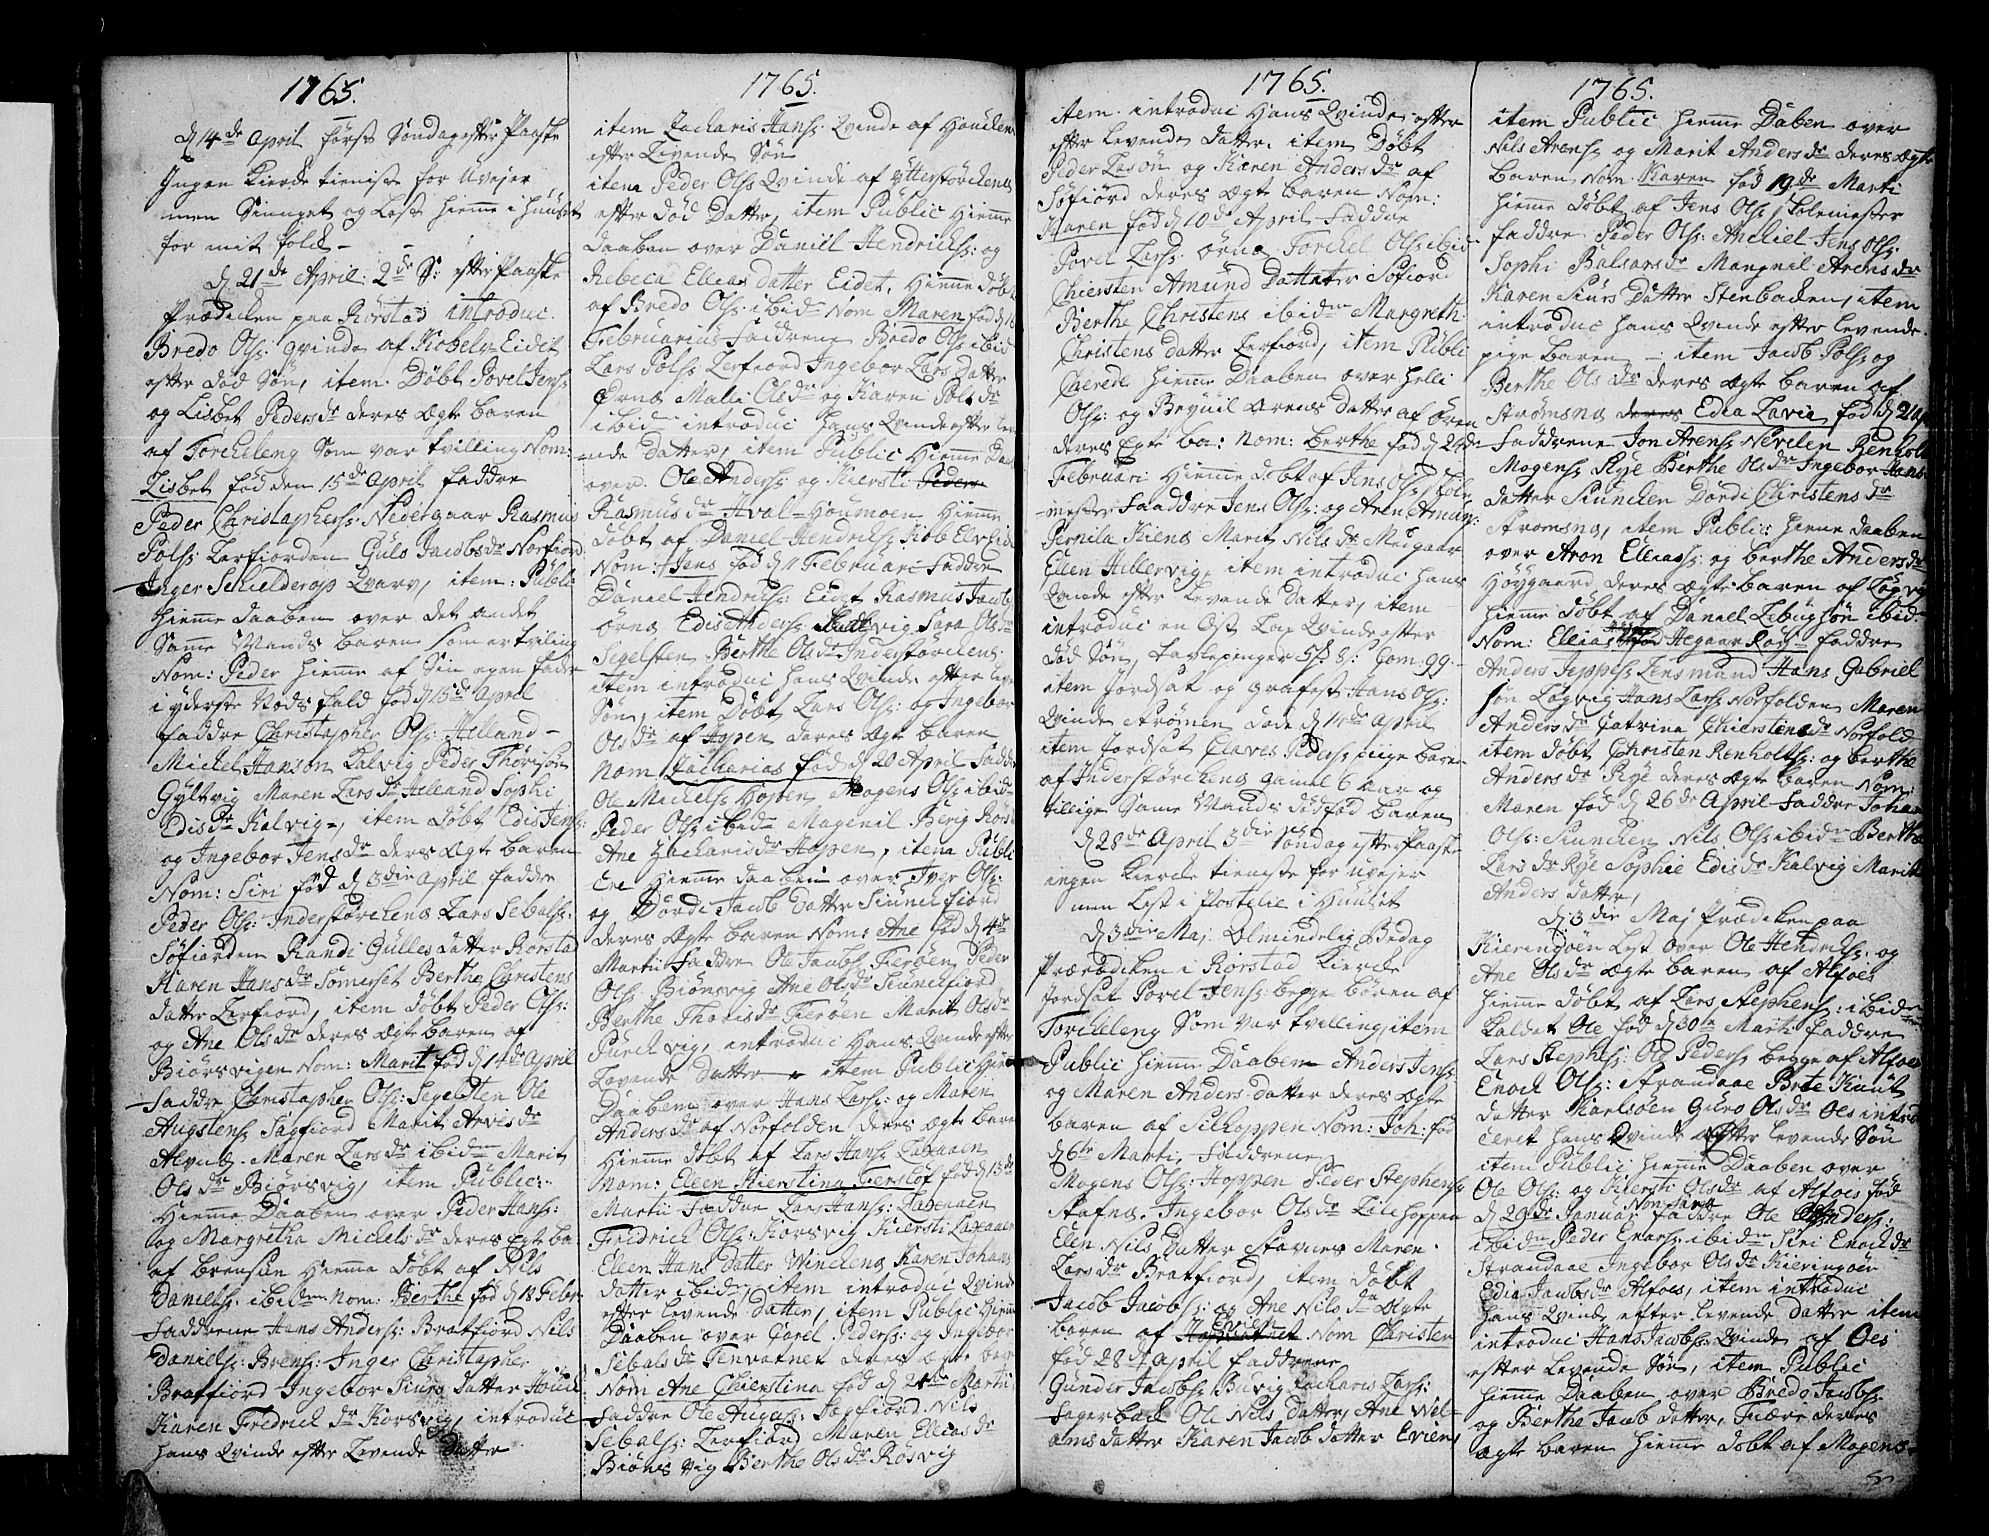 1765.
d 14de April første Søndag efter Paaske
Ingen Kierde tieniste for Uvejer
men Siunget og Lest hieme i huuset
for mit folck -
d 21de April: 2de S: efter Paaske
Prædicken paa Rørstad introduc.
Bredo Ols: qvinde af Kobelv=Eidet
efter død Søn, item. Døbt Povel Jens:
og Lisbet Pedersdr deres Ægte baren
af Torckeleng Som var tvilling Nom:
Lisbet fød den 15de April faddre
Peder Christophers: Nedergaar Rasmus
Pols: Lerfiorden Guls Jacobsdr Norfiord
Inger Schielderop Qvarv, item: Public
hieme daaben over det andet
Samme Mands baren som er tviling
Nom: Peder hieme af Sin egen fader
i yderste Nøds fald fød d 15de April
faddre Christopher Ols: Helland -
Michel Hanson Kalvig Peder Thorison
Gyltvig Maren Larsdr Helland Sophi
Edisdr Kalvig, item Døbt Edis Jens:
og Ingebor Jensdr deres Ægte baren
Nom: Siri fød d 3die April faddre
Peder Ols: Inderstørckens Lars Sebals:
Søfiorden Randi Gulles datter Rørstad
Karen Hansdr Somerset Berthe Christens
datter Lerfiord, item døbt Peder Ols:
og Ane Olsdr deres Ægte baren af
Biørsvigen Nom: Marit fød d 14de April
faddre Christopher Ols: Segelsten Ole
Augstens: Sagfiord Marit Arvisdr
Alvnes. Maren Larsdr ibidm Marit
Olsdr Biørsvig, item Public:
Hieme Daaben over Peder Hans:
og Margretha Michelsdr deres Egte ba
af brensun Hieme Døbt af Nils
Daniels: ibidm Nom: Berthe fød d 18 Febr
faddrene Hans Anders: Bratfiord Nils
Daniels: Brens: Inger Christopher
Bratfiord Ingebor Siurs datter Houck
Karen Fredrich dr Korsvig, introduc
hans Qvinde efter Levende Datter
1765.
item Zacharis Hans: Qvinde af Houckens
efter Levende Søn
item Peder Ols: Qvinde af Ytterstørckens
efter død Datter, item Public Hieme
daaben over Daniel Hendricks: og
Rebeca Ellias datter Eidet, Hieme døbt
af Bredo Ols: ibidm Nom Maren fød d 16
Februarius faddrene Bredo Ols: ibid
Lars Pols: Lerfiord Ingebor Lars datter
Ørnes Mali Olsdr og Karen Polsdr
ibid introduc hans Qvinde efter lev
=nde datter, item Public Hieme Daa
over. Ole Anders: og Kiersti
Rasmusdr Hval=Houmoen Hieme
døbt af Daniel Hendricks: Kob Elv Eid
Nom: Jens fød d 11 Februari faddre
Daniel Hendricks: Eidet Rasmus Jacob
Ørnes Edis Anders: vig Sara Olsdr
Segelsten Berthe Olsdr Inderstørckens
item introduc hans Qvinde efter Leve
Søn, item Døbt Lars Ols: og Ingebor
Olsdr af Hopen deres Ægte baren
Nom Zacharias fød d 20 April Faddre
Ole Michels: Hoppen Mogens Ols: ibid
Peder Ols: ibidm Magenil Berig Rørst
Ane Zacharisdr Hopen, item Publi
Ere Hieme daaben over Iver Ols:
og Dordi Jacob datter Siunckfiord
deres Ægte baren Nom: Ane fød d 4de
Martii faddre Ole Jacobs: Fierøen Peder
Ols: Biønsvig Ane Olsdr Siunckfiord
Berthe Thorisdr Fierøen Marit Olsdr
Purck vig, introduc Hans Qvinde efter
Levende datter, item Public Hieme
Daaben over Hans Lars: og Maren
Andersdr af Norfolden deres ægte baren
Hieme døbt af Lars Hans: Laxaaen
Nom: Eleen Kierstina Ferslöf fød d 13de
Martii faddre Lars Hans: Laxaaen
Fredrich Ols: Korsvig Kiersti Laxaaen
Eleen Hans datter Winckens Karen Johans
datter ibidm, item introduc Qvinde
efter levende datter, item Public Hieme
Daaben over Carel Peders: og Ingebor
Sebalsdr Tenvatnet deres Ægte bar
Nom Ane Chierstina fød d 24de Martii
faddre Ole Augus: Sagfiord Nils
Sebals: Lerfiord Maren Elliasdr
Biønsvig Berthe Olsdr Røsvig
1765.
item. introduc Hans Qvinde efter
efter Levende datter, item Døbt
Peder Lasøn og Karen Andersdr af
Søfiord deres Ægte baren Nom:
Maren fød d 10de April faddre
Povel Lars: Ørnes Torckel Ols: ibid
Chiersten Amund Dattter Søfiord
Berthe Christens ibidm Margreth
Christens datter Lerfiord, item Publi
Cerede Hieme Daaben over Helli
Ols: og Bryuil Arens datter af Øren
deres Egte ba: Nom: Berthe fød d 24de
Februari Hieme døbt af Jens Ols: Skole
=mester Faaddre Jens Ols: og Aren Amun:
Pernila Kiens Marit Nilsdr Medgaar
Ellen Hellervig, item introduc hans
Qvinde efter Levende datter, item
introduc en Ost Lap Qvinde efter
død Søn, Tavlepenger 5s 8: Com: 99.
item Jordsat og grafest Hans Ols:
Qvinde Strømen døde d 14de April
item Jordsat Claves Peders: piige baren
af Inderstørckens gamel 6 aar og
tillige Same Mands dødfød baren
d 28de April 3die Søndag efter Paaske
ingen Kierde tieniste for uvejer
men Lest i Postelie i Huuset
d 3die Maj Olmindelig Bedag
Prærædicken i Rørstad Kierde
Jordsat Povel Jens: begge børen af
Torckeleng Som Var tvilling, item
Public Hieme Daaben Anders Jens:
og Maren Anders datter deres Ægte
baren af Silhoppen Nom: Joh: fød
d 6te Marti, Faddrene
Mogens Ols: Hoppen Peder Stephens:
Stafnes. Ingebor Olsdr Lilehoppen
Elen Nils datter Stavnes Maren
Larsdr Bratfiord, item døbt
Jacob Jacobs: og Ane Nilsdr Ægte
baren af Evien Nom Christen
fød 28de April faddrene
Gunder Jacobs: Buvig Zacharis Lars:
Fagerback Ole Nils datter, Ane Wel-
ams datter Karen Jacob datter Eviens
1765.
item Public Hieme Daben over
Nils Arens: og Marit Andersdr deres Ægte
Baren Nom. Karen fød 19de Marti
hieme døbt af Jens Ols: Skolemester
Faddre Peder Ols: Anckiel Jens Ols:
Sophi Balsarsdr Mangnil Arensdr
Karen Siurs datter Stenbacken, item
introduc hans Qvinde efter levende
pige baren - item Jacob Pols: og
Berthe Olsdr deres ægte baren af
Strømsnes deres Edea Lavia fød d 21 Ap
faddrene Jon Arens: Nevelen Renholt
Mogens: Rye Berthe Olsdr Ingebor Hans
datter Siuncken Dordi Christensdr
Stromsnes, item Public: hieme daaben
over Aron Ellias: og berthe Andersdr
Høygaard deres Ægte baren af Løgvig
hieme døbt af Daniel Zebugsøn ibid
Nom: Ellias Hegaar Rosv faddre
Anders Jeppes: Lensmand Hans Gabriel
søn Løgvig Hans Lars: Norfolden Maren
Andersdr Catrina Chierstinadr Norfold
item døbt Christen Renholts: og berthe
Andersdr Rye deres Ægte baren Nom:
Maren fød d 26de April faddre Johan
Ols: Siuncken Nils Ols: ibidm Berthe
Larsdr Rye Sophie Edisdr Kalvig Marit
Anders datter,
d 3die Maj Prædicken paa
Kieringøen Lyst over Ole Hendricks: og
Ane Olsdr Ægte baren af Alfoes
hieme døbt af Lars Stephens: ibidm
Kaldet Ole fød d 30te Marti faddre
Lars Stephs: Ole Peders: begge af Alfoes
Enock Ols: Strandaae Brte Knut
datter Karlsøen Guro Olsdr Oes introd
Ceret hans Qvinde efter levende Søn
item Public hieme Daaben over
Ole Ols: og Kiersti Olsdr af Alfoes fød
d 29de Januar Nom Sara faddre Ole Anders:
ibidm Peder Enars: ibidm Siri Enockdr
Strandaae Ingebor Olsdr Kieringøen
Edia Jacobsdr Alfoes, item introduc
hans Qvinde efter levende datter item
introduc Hans Jacobs: Qvinde af Oes
efter levende Søn, item Public
hieme Daaben over Bredo Jacobs:
og Berthe Jacob datter, Fiære deres
ægte baren hieme døbt af Mogens